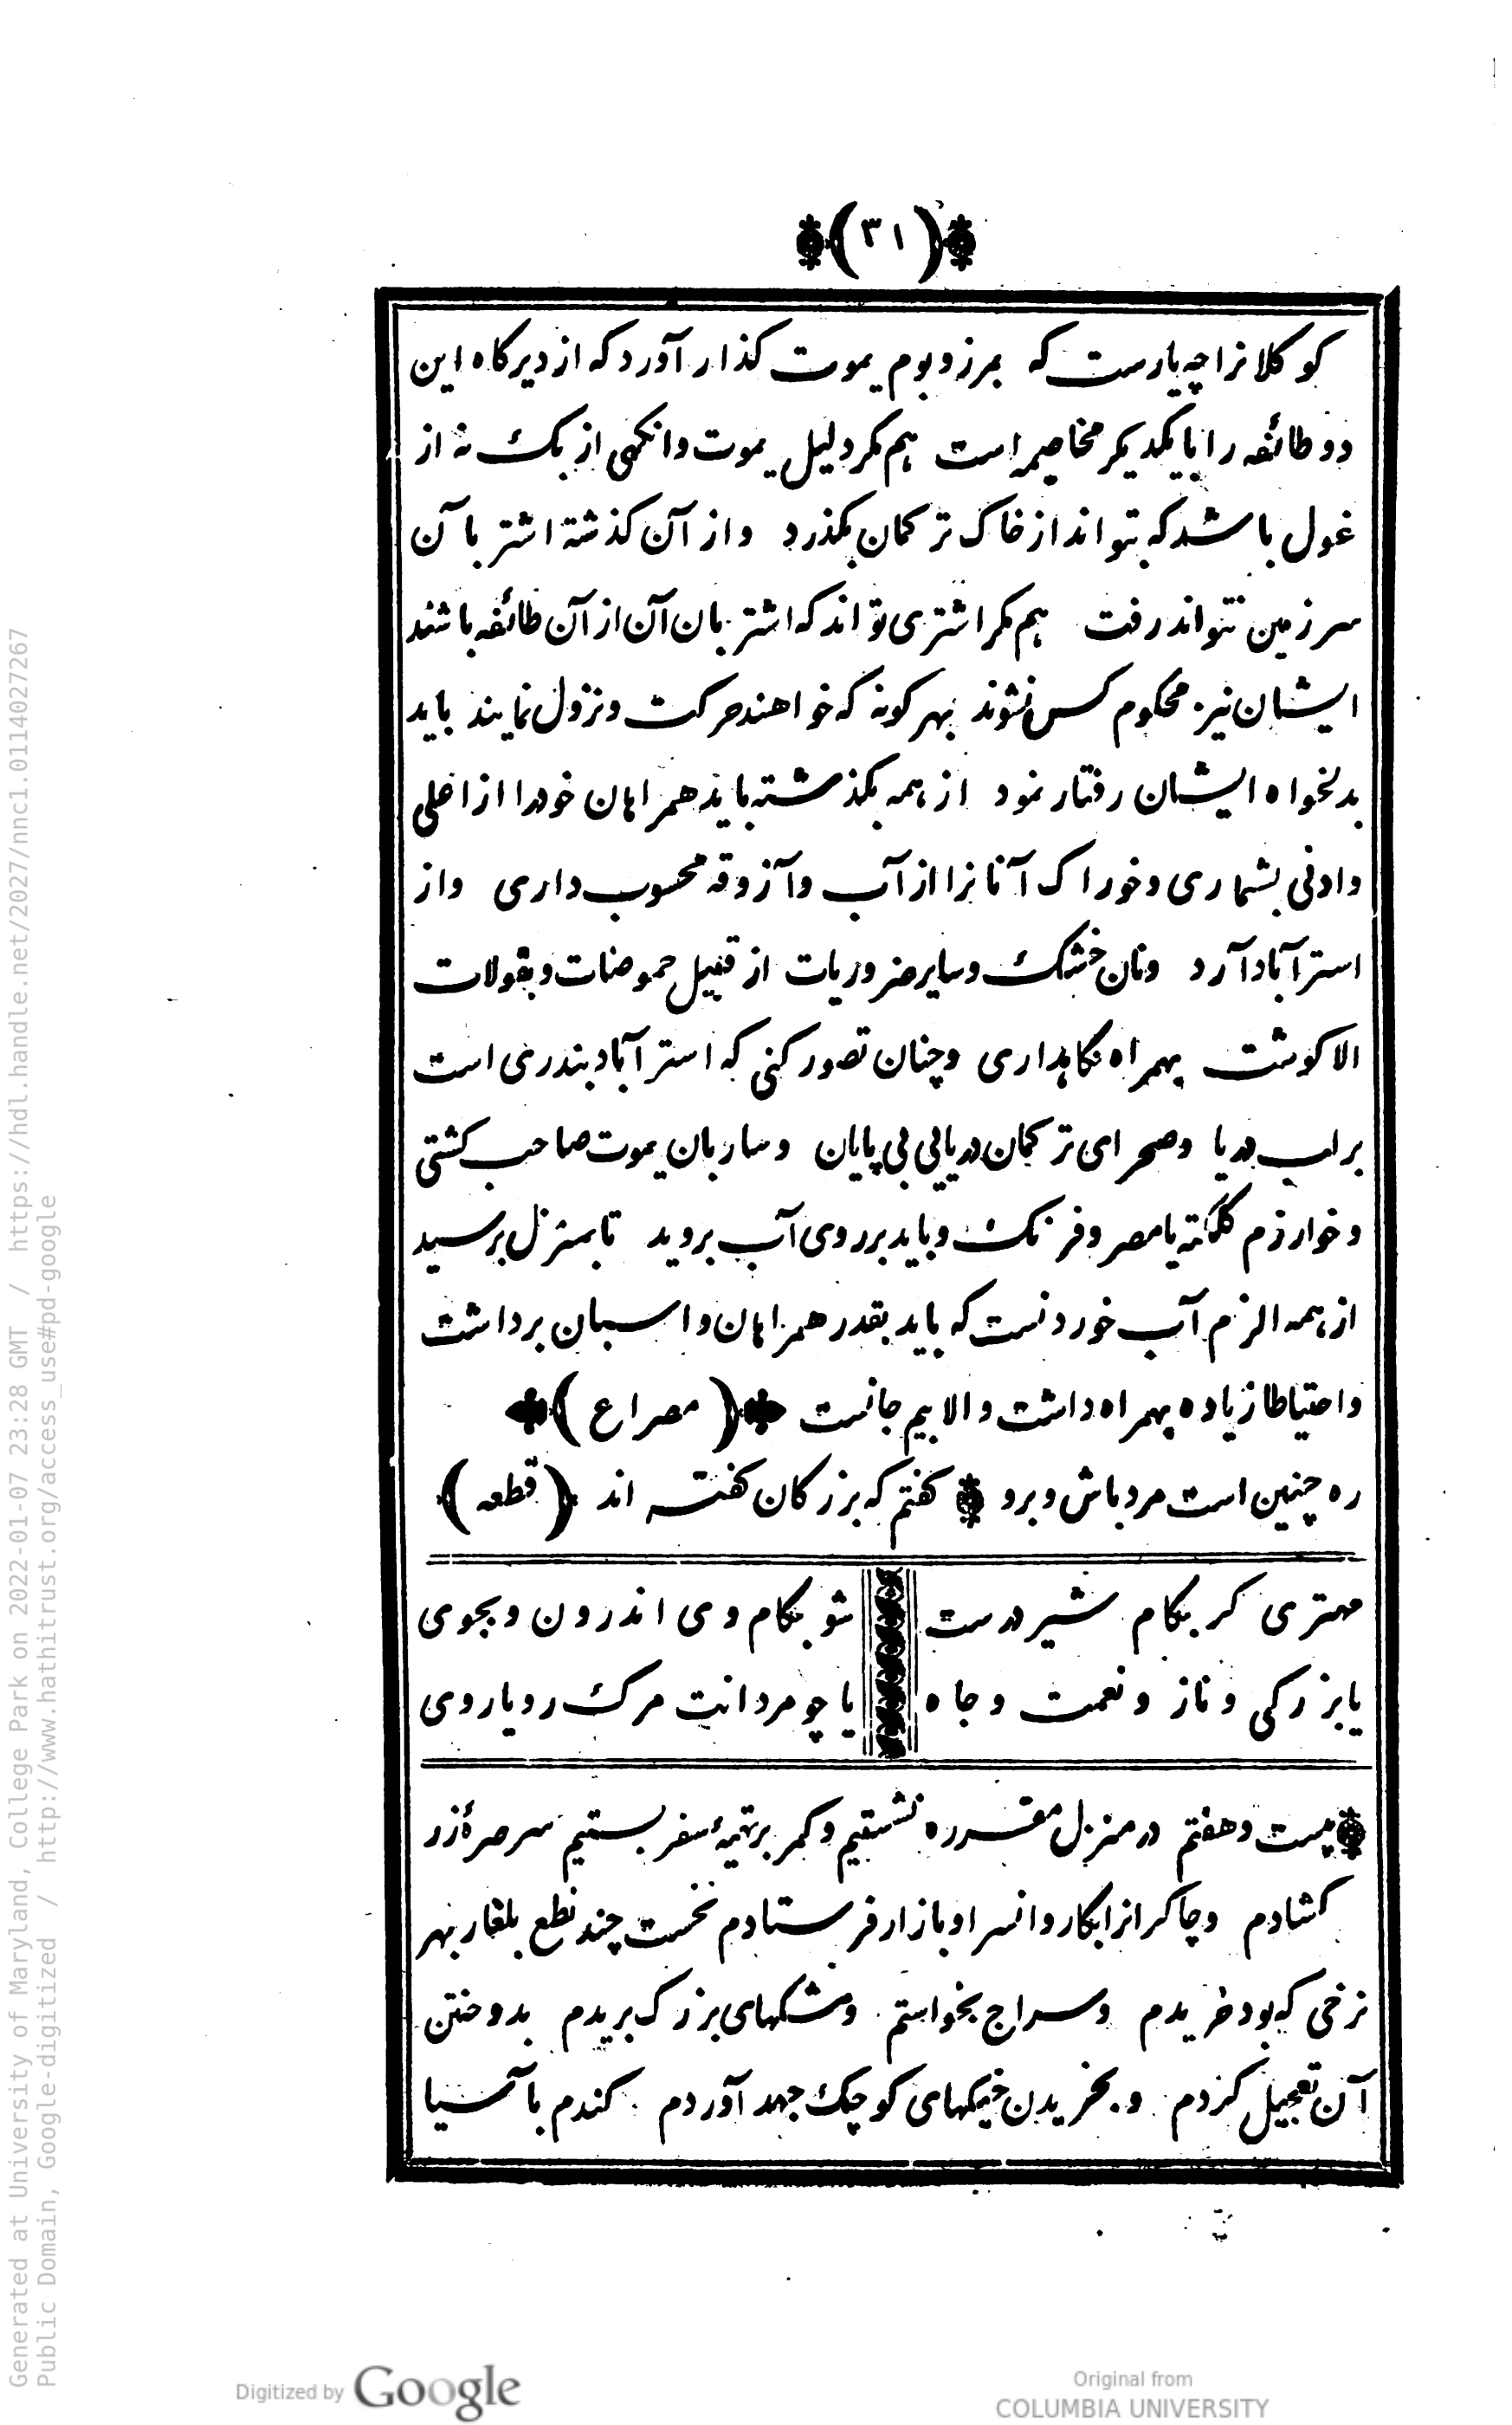 (۳۱)
کوکلانرا چه یارست که بمرز و بوم یموت کذار آورد که از دیرکاه این
دو طائفه را با یکدیکر مخاصمه است هم مکر دلیل یموت وانکهی از بک نه از
غول باشد که بتواند از خاک ترکمان بکذرد واز آن کذشته اشتر با آن
سرزمین نتواند رفت هم مکر اشتری تواند که اشتربان آن از آن طائفه باشند
ایشان نیز محکوم کس نشوند بهر کونه که خواهند حرکت و نزول نمایند باید
بدلخواه ایشان رفتار نمود از همه بکذشته باید همراهان خود را از اعلی
وادنی بشماری و خوراک آنانرا از آب وآزوقه محسوب داری واز
استرآباد آرد ونان خشک وسایر ضروریات از قبیل حموضات و بقولات
الا کوشت بهمراه نکاهداری وچنان تصور کنی که استرآباد بندری است
بر لب دریا وصحرای ترکمان دریایی بی پایان وساربان یموت صاحب کشتی
وخوارزم کلکته یا مصر وفرنک وباید بر روی آب بروید تا بمنزل برسید
از همه الزم آب خوردنست که باید بقدر همراهان واسبان برداشت
واحتیاطا زیاده بهمراه داشت والا بیم جانست ( مصراع )
ره چنین است مرد باش و برو کفتم که بزرکان کفته اند ( قطعه )
مهتری کر بکام شیر درست شو بکام وی اندرون و بجوی
یا بزرکی و ناز و نعمت وجاه یا چو مردانت مرک رویاروی
بیست وهفتم در منزل مقرره نشستیم وکمر بر تهیهٔ سفر بستیم سر صرهٔ زر
کشادم وچاکرانرا بکاروانسرا و بازار فرستادم نخست چند نطع بلغار بهر
نرخی که بود خریدم وسراج بخواستم ومشکهای بزرک بریدم بدوختن
آن تعجیل کردم وبخریدن خیکهای کوچک جهد آوردم کندم با آسیا
Digitized by Google
Original from
COLUMBIA UNIVERSITY
Generated at University of Maryland, College Park on 2022-01-07 23:28 GMT / https://hdl.handle.net/2027/nnc1.0114027267
Public Domain, Google-digitized / http://www.hathitrust.org/access_use#pd-google